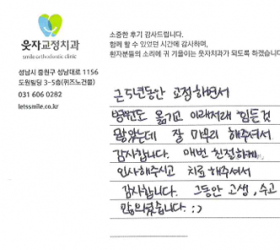 웃자교정치과
smile orthodontic clinic
성남시 중원구 성남대로 1156
도원빌딩 3-5층(위즈노건물)
031 606 0282
letssmile.co.kr
소중한 후기 감사드립니다.
함께 할 수 있었던 시간에 감사하며,
환자분들의 소리에 귀 기울이는 웃자교정치과가 되도록 하겠습니다
근 5년동안 교정하면서
병원도 옮기고 이래저래 힘든것
많았는데 잘 마무리 해주셔서
감사합니다. 매번 친절하게
인사해주시고 치료 해주셔서
감사합니다. 그동안 고생, 수고
많으셨습니다. :)